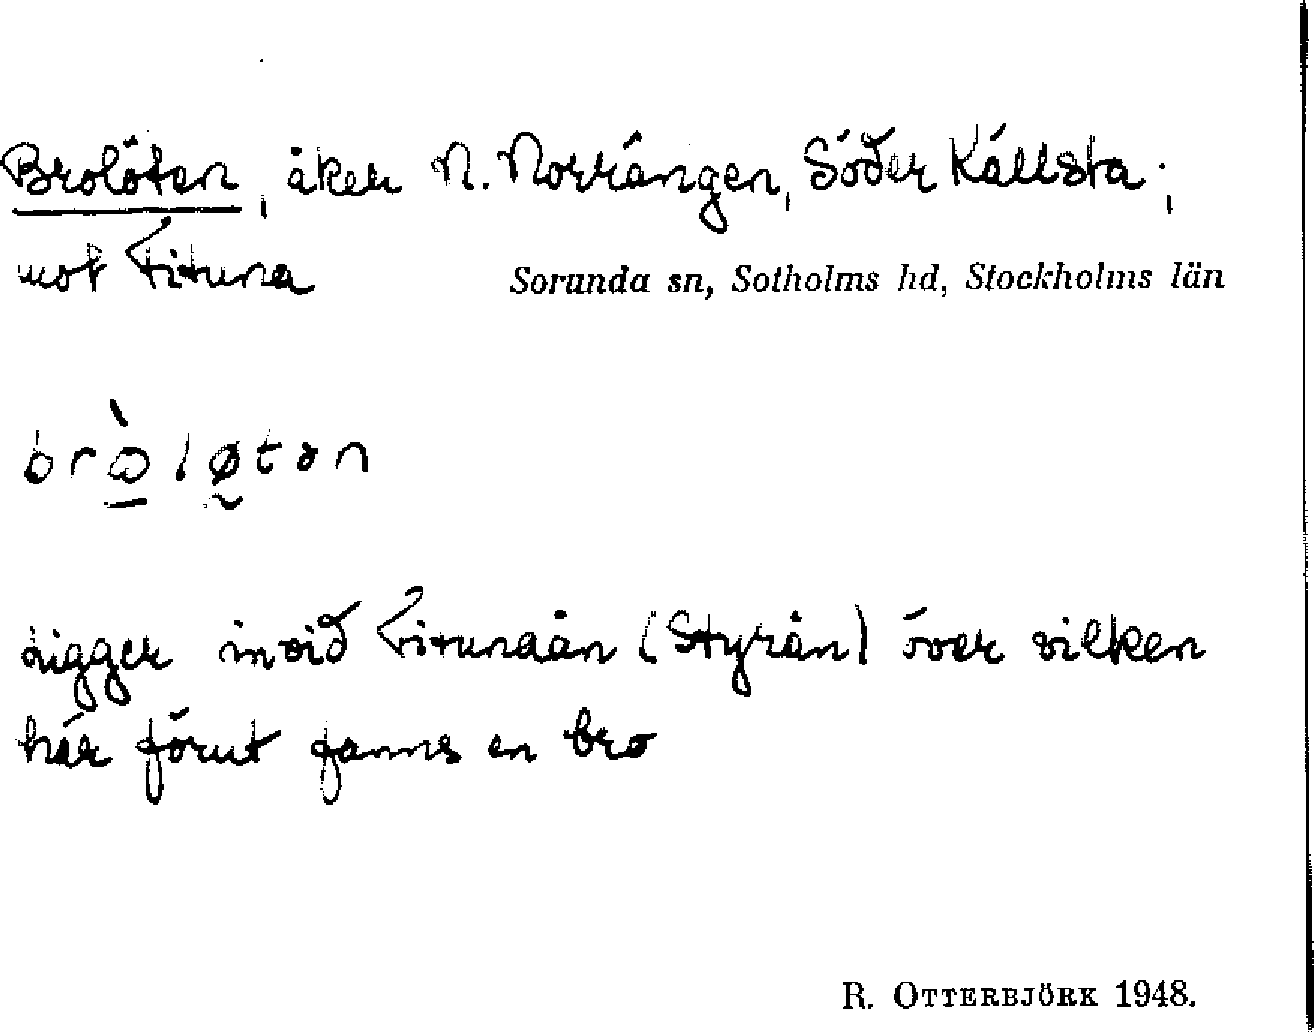 Brolöten, åker N. Norrängen, Söder Källsta;
mot Fituna
Sorunda sn, Sotholms hd, Stockholms län
brò̱løtən
ligger invid Fitunaån (Styrån) över vilken
här förut fanns en bro
R. OTTERBJÖRK 1948.